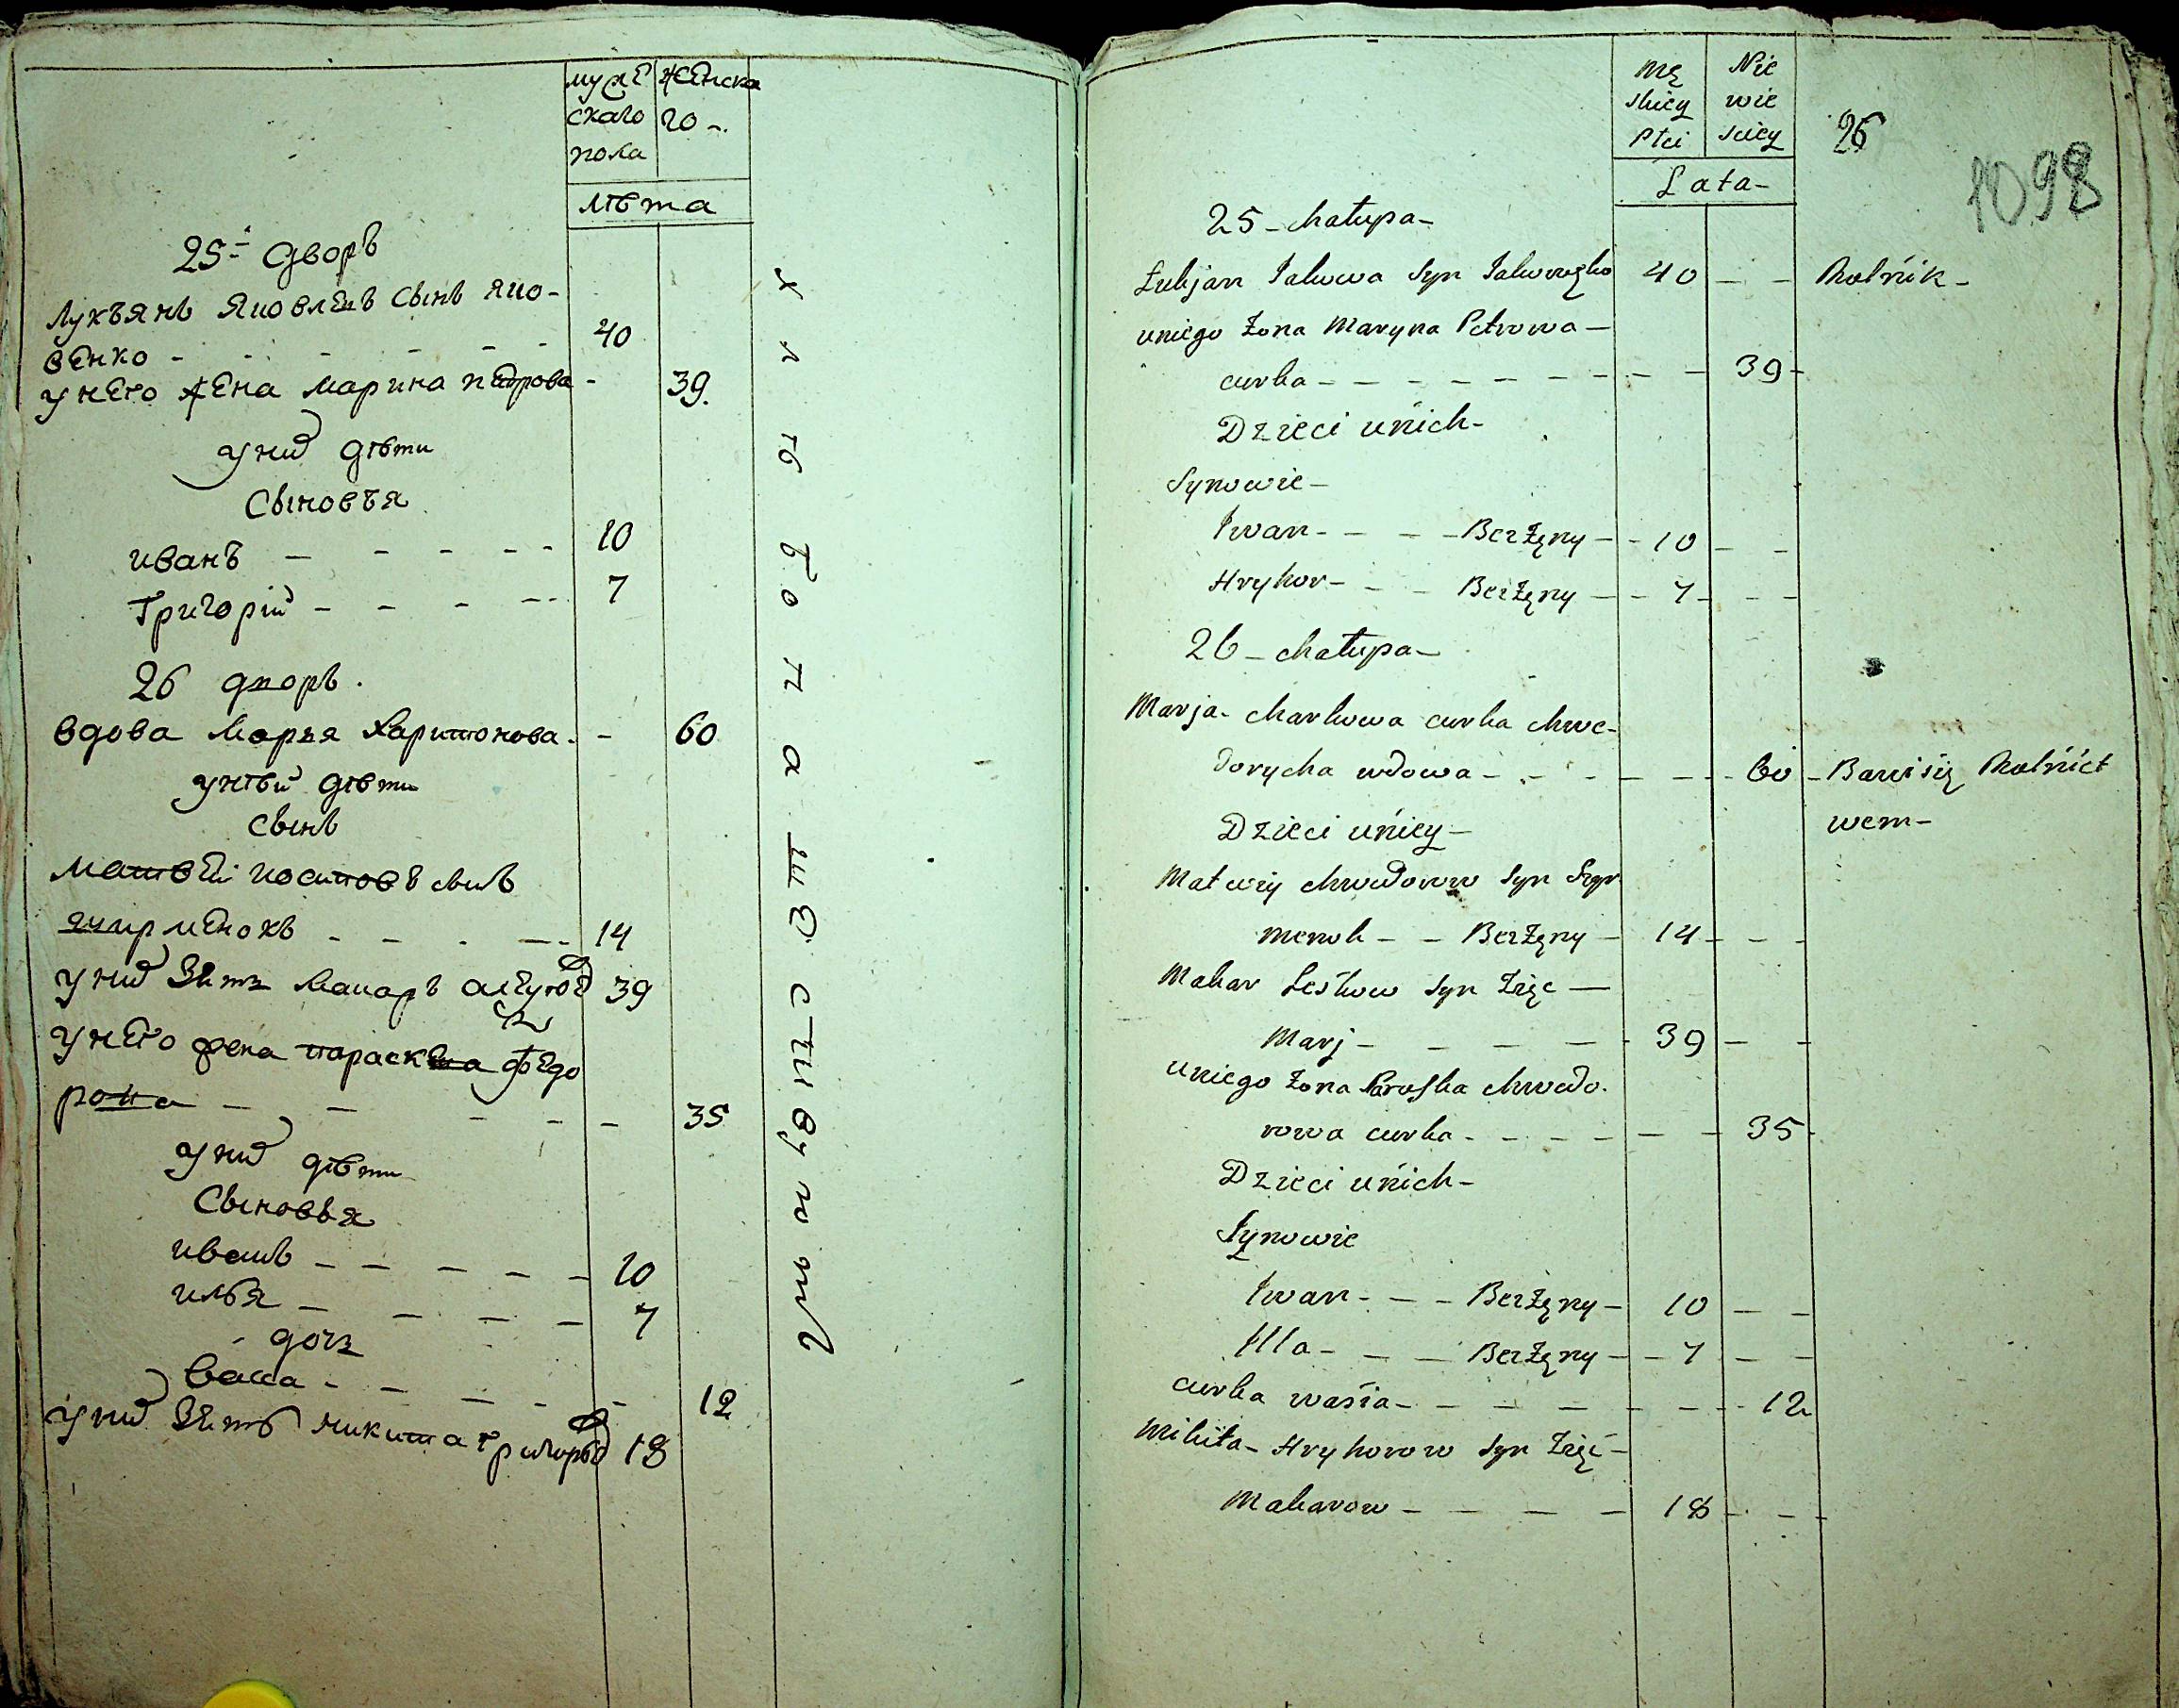 мужЕ женска
скаго го -.
пола
лѣта
25-й дворъ
Лукъянъ Яковлевъ сынъ Яко-
венко - 40
у него жена Марина Петрова - 39.
у них дѣти
Сыновъя
иванъ - 10
Григорій - 7
26 дворъ.
вдова Марья Харитонова. - 60
у нѣй дѣти
сынъ
Матвѣй сынъ
14
у них зять Макаръ 39
у него жена Параскева Ѳедо
рова - 35
у них дѣти
Сыновья
иванъ - 10
илья - 7
дочь
Васса - 12
у них зять никита Григорьев 18
хлѣбопашествуют
Mę Nie
skiey wie
Płci sciey
Lata-
26
1098
25 - Chałupa -
Łukjan Jakowa Syn Jakowęko 40 - - Rolńik -
uniego Żona Maryna Petrowa -
curka - 39 -
Dzieci uńich -
Synowie -
Iwan - - - Bezżęny - - 10 - -
Hryhor - - - Bezżęny - - 7 - - -
26 - Chałupa -
Marja - Charkowa curka Chwe-
dorycha wdowa - 60 - Bawi się Rolńict
wem -
Dzieci uńiey -
Matwiy Chwedorow Syn
menok - - Bezżęny - 14 - - -
Makar Leśkow Syn Zięc -
Marj - 39 - -
uniego Żona Paraska Chwedo.
rowa curka - 35 -
Dzieci uńich -
Synowie
Iwan - - - Bezżęny - 10 - -
Illa - - - Bezżęny - - 7 - -
curka waśia - 12
Mikita - Hryhorow Syn Zięć -
Makarow - 18 - - -